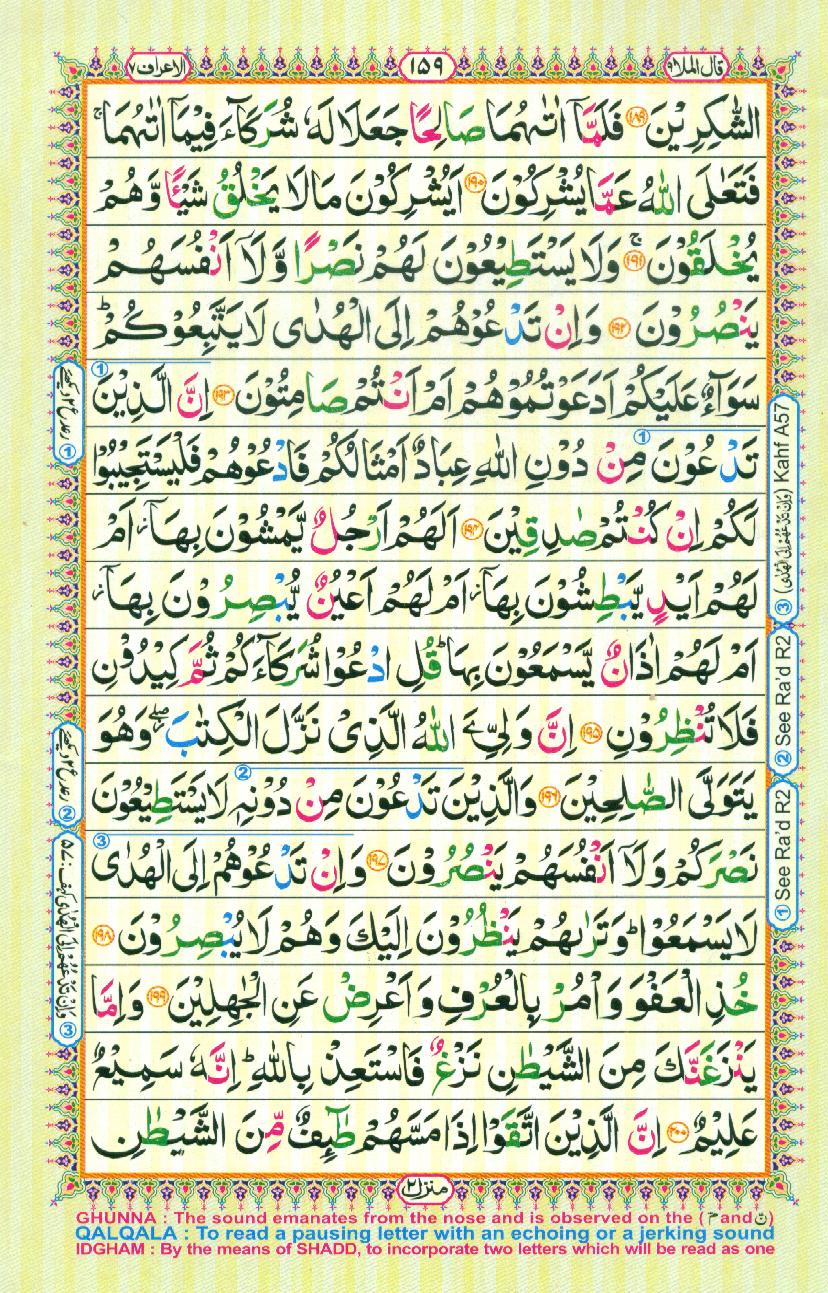 قال الملا ٩
١٥٩
الاعراف ٧
الشّٰكِرِيْنَ ﴿۱۸۹﴾ فَلَمَّاۤ اٰتٰىهُمَا صَالِحًا جَعَلَا لَهٗ شُرَكَآءَ فِيْمَاۤ اٰتٰىهُمَا ۚ
فَتَعٰلَى اللّٰهُ عَمَّا يُشْرِكُوْنَ ﴿۱۹۰﴾ اَيُشْرِكُوْنَ مَا لَا يَخْلُقُ شَيْـًٔا وَّهُمْ
يُخْلَقُوْنَ ۚ ﴿۱۹۱﴾ وَلَا يَسْتَطِيْعُوْنَ لَهُمْ نَصْرًا وَّلَاۤ اَنْفُسَهُمْ
يَنْصُرُوْنَ ﴿۱۹۲﴾ وَاِنْ تَدْعُوْهُمْ اِلَى الْهُدٰى لَا يَتَّبِعُوْكُمْ ؕ
سَوَآءٌ عَلَيْكُمْ اَدَعَوْتُمُوْهُمْ اَمْ اَنْتُمْ صَامِتُوْنَ ﴿۱۹۳﴾ اِنَّ الَّذِيْنَ ①
تَدْعُوْنَ مِنْ دُوْنِ اللّٰهِ عِبَادٌ اَمْثَالُكُمْ فَادْعُوْهُمْ فَلْيَسْتَجِيْبُوْا ①
لَكُمْ اِنْ كُنْتُمْ صٰدِقِيْنَ ﴿۱۹۴﴾ اَلَهُمْ اَرْجُلٌ يَّمْشُوْنَ بِهَاۤ ؗ اَمْ
لَهُمْ اَيْدٍ يَّبْطِشُوْنَ بِهَاۤ ؗ اَمْ لَهُمْ اَعْيُنٌ يُّبْصِرُوْنَ بِهَاۤ ؗ
اَمْ لَهُمْ اٰذَانٌ يَّسْمَعُوْنَ بِهَا ؕ قُلِ ادْعُوْا شُرَكَآءَكُمْ ثُمَّ كِيْدُوْنِ
فَلَا تُنْظِرُوْنِ ﴿۱۹۵﴾ اِنَّ وَلِيِّ َۧ اللّٰهُ الَّذِيْ نَزَّلَ الْكِتٰبَ ۖؗ وَهُوَ
يَتَوَلَّى الصّٰلِحِيْنَ ﴿۱۹۶﴾ وَالَّذِيْنَ تَدْعُوْنَ مِنْ دُوْنِهٖ لَا يَسْتَطِيْعُوْنَ ②
نَصْرَكُمْ وَلَاۤ اَنْفُسَهُمْ يَنْصُرُوْنَ ﴿۱۹۷﴾ وَاِنْ تَدْعُوْهُمْ اِلَى الْهُدٰى ③
لَا يَسْمَعُوْا ؕ وَتَرٰىهُمْ يَنْظُرُوْنَ اِلَيْكَ وَهُمْ لَا يُبْصِرُوْنَ ﴿۱۹۸﴾
خُذِ الْعَفْوَ وَاْمُرْ بِالْعُرْفِ وَاَعْرِضْ عَنِ الْجٰهِلِيْنَ ﴿۱۹۹﴾ وَاِمَّا
يَنْزَغَنَّكَ مِنَ الشَّيْطٰنِ نَزْغٌ فَاسْتَعِذْ بِاللّٰهِ ؕ اِنَّهٗ سَمِيْعٌ
عَلِيْمٌ ﴿۲۰۰﴾ اِنَّ الَّذِيْنَ اتَّقَوْا اِذَا مَسَّهُمْ طٰٓئِفٌ مِّنَ الشَّيْطٰنِ
① See Ra'd R2
② See Ra'd R2
③ (وَاِنْ تَدْعُهُمْ اِلَى الْهُدٰى) Kahf A57
① رعد ع ۲ دیکھئے
② رعد ع ۲ دیکھئے
③ وَاِنْ تَدْعُهُمْ اِلَى الْهُدٰى کہف : ۵۷
منزل ٢
GHUNNA : The sound emanates from the nose and is observed on the (مّ and نّ)
QALQALA : To read a pausing letter with an echoing or a jerking sound
IDGHAM : By the means of SHADD, to incorporate two letters which will be read as one